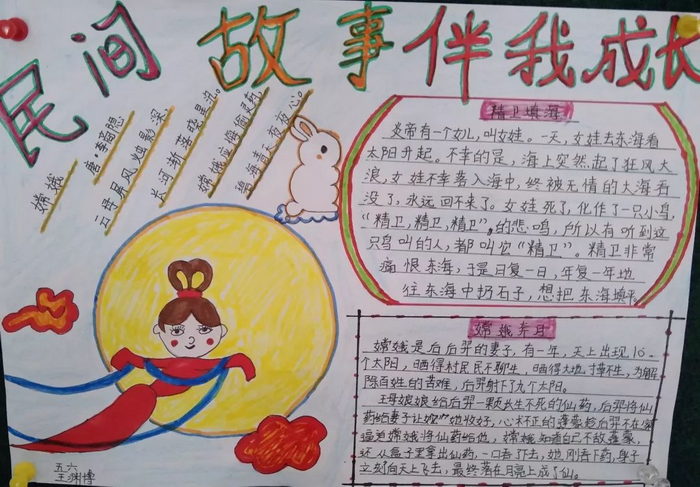 民间故事伴我成长
嫦娥
唐·李商隐
云母屏风烛影深，
长河渐落晓星沉。
嫦娥应悔偷灵药，
碧海青天夜夜心。
精卫填海
炎帝有一个女儿，叫女娃。一天，女娃去东海看
太阳升起。不幸的是，海上突然起了狂风大
浪，女娃不幸落入海中，终被无情的大海
没了，永远回不来了。女娃死了，化作了一只小鸟，
“精卫，精卫，精卫”，的悲鸣，所以有听到这
只鸟叫的人，都叫它“精卫”。精卫非常
痛恨东海，于是日复一日，年复一年地
往东海中扔石子，想把东海填平。
嫦娥奔月
嫦娥是后羿的妻子，有一年，天上出现10
个太阳，晒得村民民不聊生，晒得大地寸草不生，为解
除百姓的苦难，后羿射下了九个太阳。
王母娘娘给后羿一颗长生不死的仙药，后羿将仙
药给妻子让她收好，心术不正的蓬蒙趁后羿不在家
逼迫嫦娥将仙药给他，嫦娥知道自己不敌蓬蒙，
还从盒子里拿出仙药，一口吞下去，她刚吞下药，身子
立刻向天上飞去，最终落在月亮上成了仙。
五六
王渊博